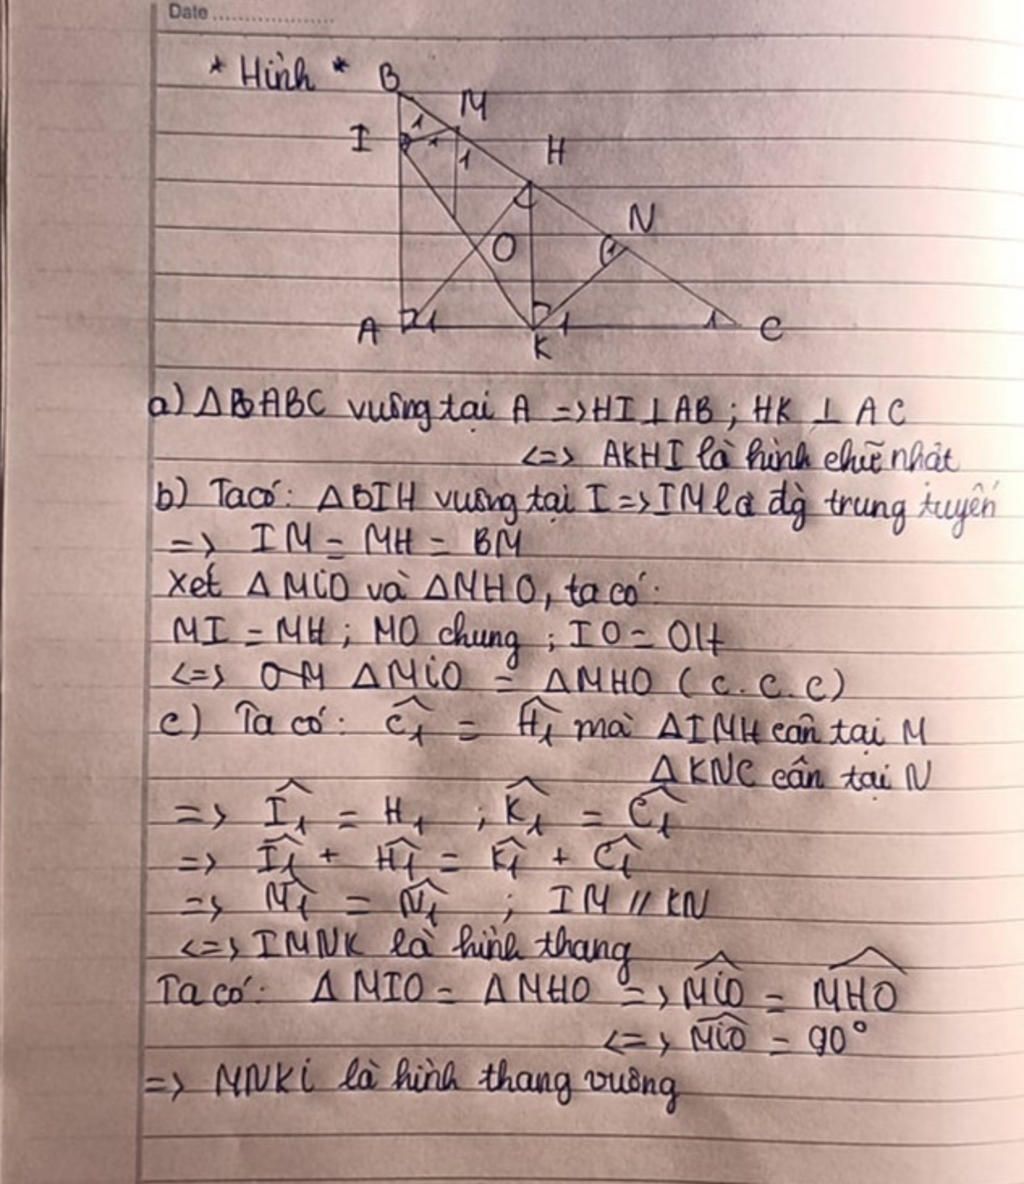 Date
* Hình *
B
M
I
1
1
1
H
N
O
1
A
1
K
1
1
C
a) ΔABC vuông tại A => HI ⊥ AB ; HK ⊥ AC
<=> AKHI là hình chữ nhật
b) Ta có: ΔBIH vuông tại I => IM là đg trung tuyến
=> IM = MH = BM
Xét ΔMiO và ΔMHO, ta có:
MI = MH ; MO chung ; IO = OH
<=> ΔMiO = ΔMHO (c.c.c)
c) Ta có: Ĉ₁ = Ĥ₁ mà ΔIMH cân tại M
ΔKNC cân tại N
=> Î₁ = H₁ ; K̂₁ = Ĉ₁
=> Î₁ + Ĥ₁ = K̂₁ + Ĉ₁
=> M̂₁ = N̂₁ ; IM // KN
<=> IMNK là hình thang
Ta có: ΔMIO = ΔMHO => M̂iO = M̂HO
<=> M̂iO = 90°
=> MNKi là hình thang vuông